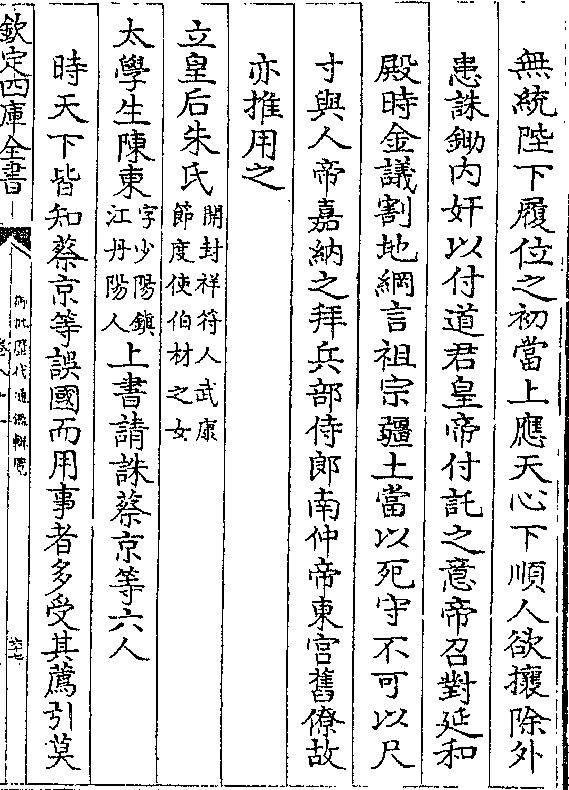 無統陛下履位之初當上應天心下順人欲攘除外
患誅鋤内奸以付道君皇帝付託之意帝召對延和
殿時金議割地綱言祖宗疆土當以死守不可以尺
寸與人帝嘉納之拜兵部侍郎南仲帝東宫舊僚故
亦推用之
立皇后朱氏開封祥符人武康節度使伯材之女
太學生陳東字少陽鎮江丹陽人上書請誅蔡京等六人
時天下皆知蔡京等誤國而用事者多受其薦引莫
欽定四庫全書
御批歷代通鑑輯覽